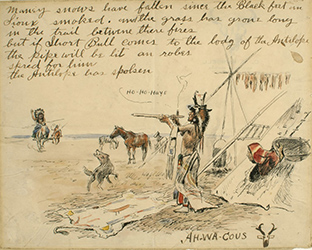 Manny snows have fallen since the Black feet an
Sioux smoked. and the grass has grone long
in the trail betwine there fires
but if Short Bull comes to the lodg of the Antilope
the pipe will be lit an robes
spred for him
the Antilope has spoken
HO-HO-HAYS
AH-WA-COUS